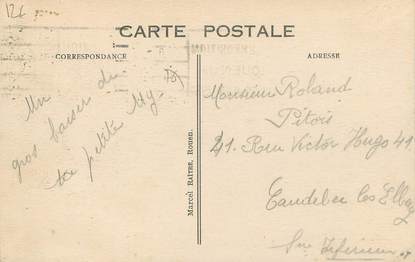 CARTE POSTALE
CORRESPONDANCE
ADRESSE
Un
gros baiser du
ta petite
Marcel Raître, Rouen.
Monsieur Roland
Pitois
41. Rue Victor Hugo 41
Caudebec les Elbeuf
Sne Inférieure